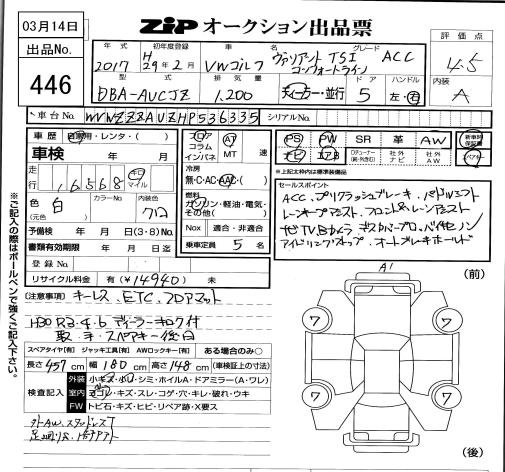 03月14日
ZIP オークション出品票
出品No.
446
年式
2017
初年度登録
H
29年2月
車名
VWゴルフ
グレード
ヴァリアント TSI
コンフォートライン
ACC
評価点
4.5
型式
DBA-AUCJZ
排気量
1,200
ディーラー・並行
ドア
5
ハンドル
左・右
内装
A
車台No.
WVWZZZAUZHP536335
シリアルNo.
車歴
自家用・レンタ・( )
車検 年 月
走行
16568
キロ
マイル
色
白
(元色)
カラーNo
内装色
クロ
予備検 年 月 日(3・8)No
書類有効期限 年 月 日迄
登録No
リサイクル料金 有(¥14940) 未
フロア
コラム
インパネ
AT
MT
速
冷房
無・C・AC・AAC・( )
燃料
ガソリン・軽油・電気・
その他( )
Nox
適合・非適合
乗車定員 5 名
PS
PW
SR
革
AW
新車時保証書
ナビ
エアB
社外ナビ
社外AW
スペアキー
※上記太枠内は標準装備品
セールスポイント
ACC. プリクラッシュブレーキ. パドルシフト
レーンキープアシスト. フロント&レーンアシスト
地TVBカメラ
アイドリングストップ. オートブレーキホールド
【注意事項】 キーレス. ETC. フロアマット
スペアタイヤ[有] ジャッキ工具[有] AWロックキー[有] ある場合のみ○
長さ 457 cm 幅 180 cm 高さ 148 cm (車検証上の寸法)
検査記入
外装
小キズ・小凹・シミ・ホイルA・ドアミラー(A・ワレ)
室内
ヨゴレ・キズ・スレ・コゲ・穴・キレ・破れ・ウキ
FW
トビ石・キズ・ヒビ・リペア跡・X要ス
A1
(前)
7
7
7
7
(後)
※ご記入の際はボールペンで強くご記入下さい。